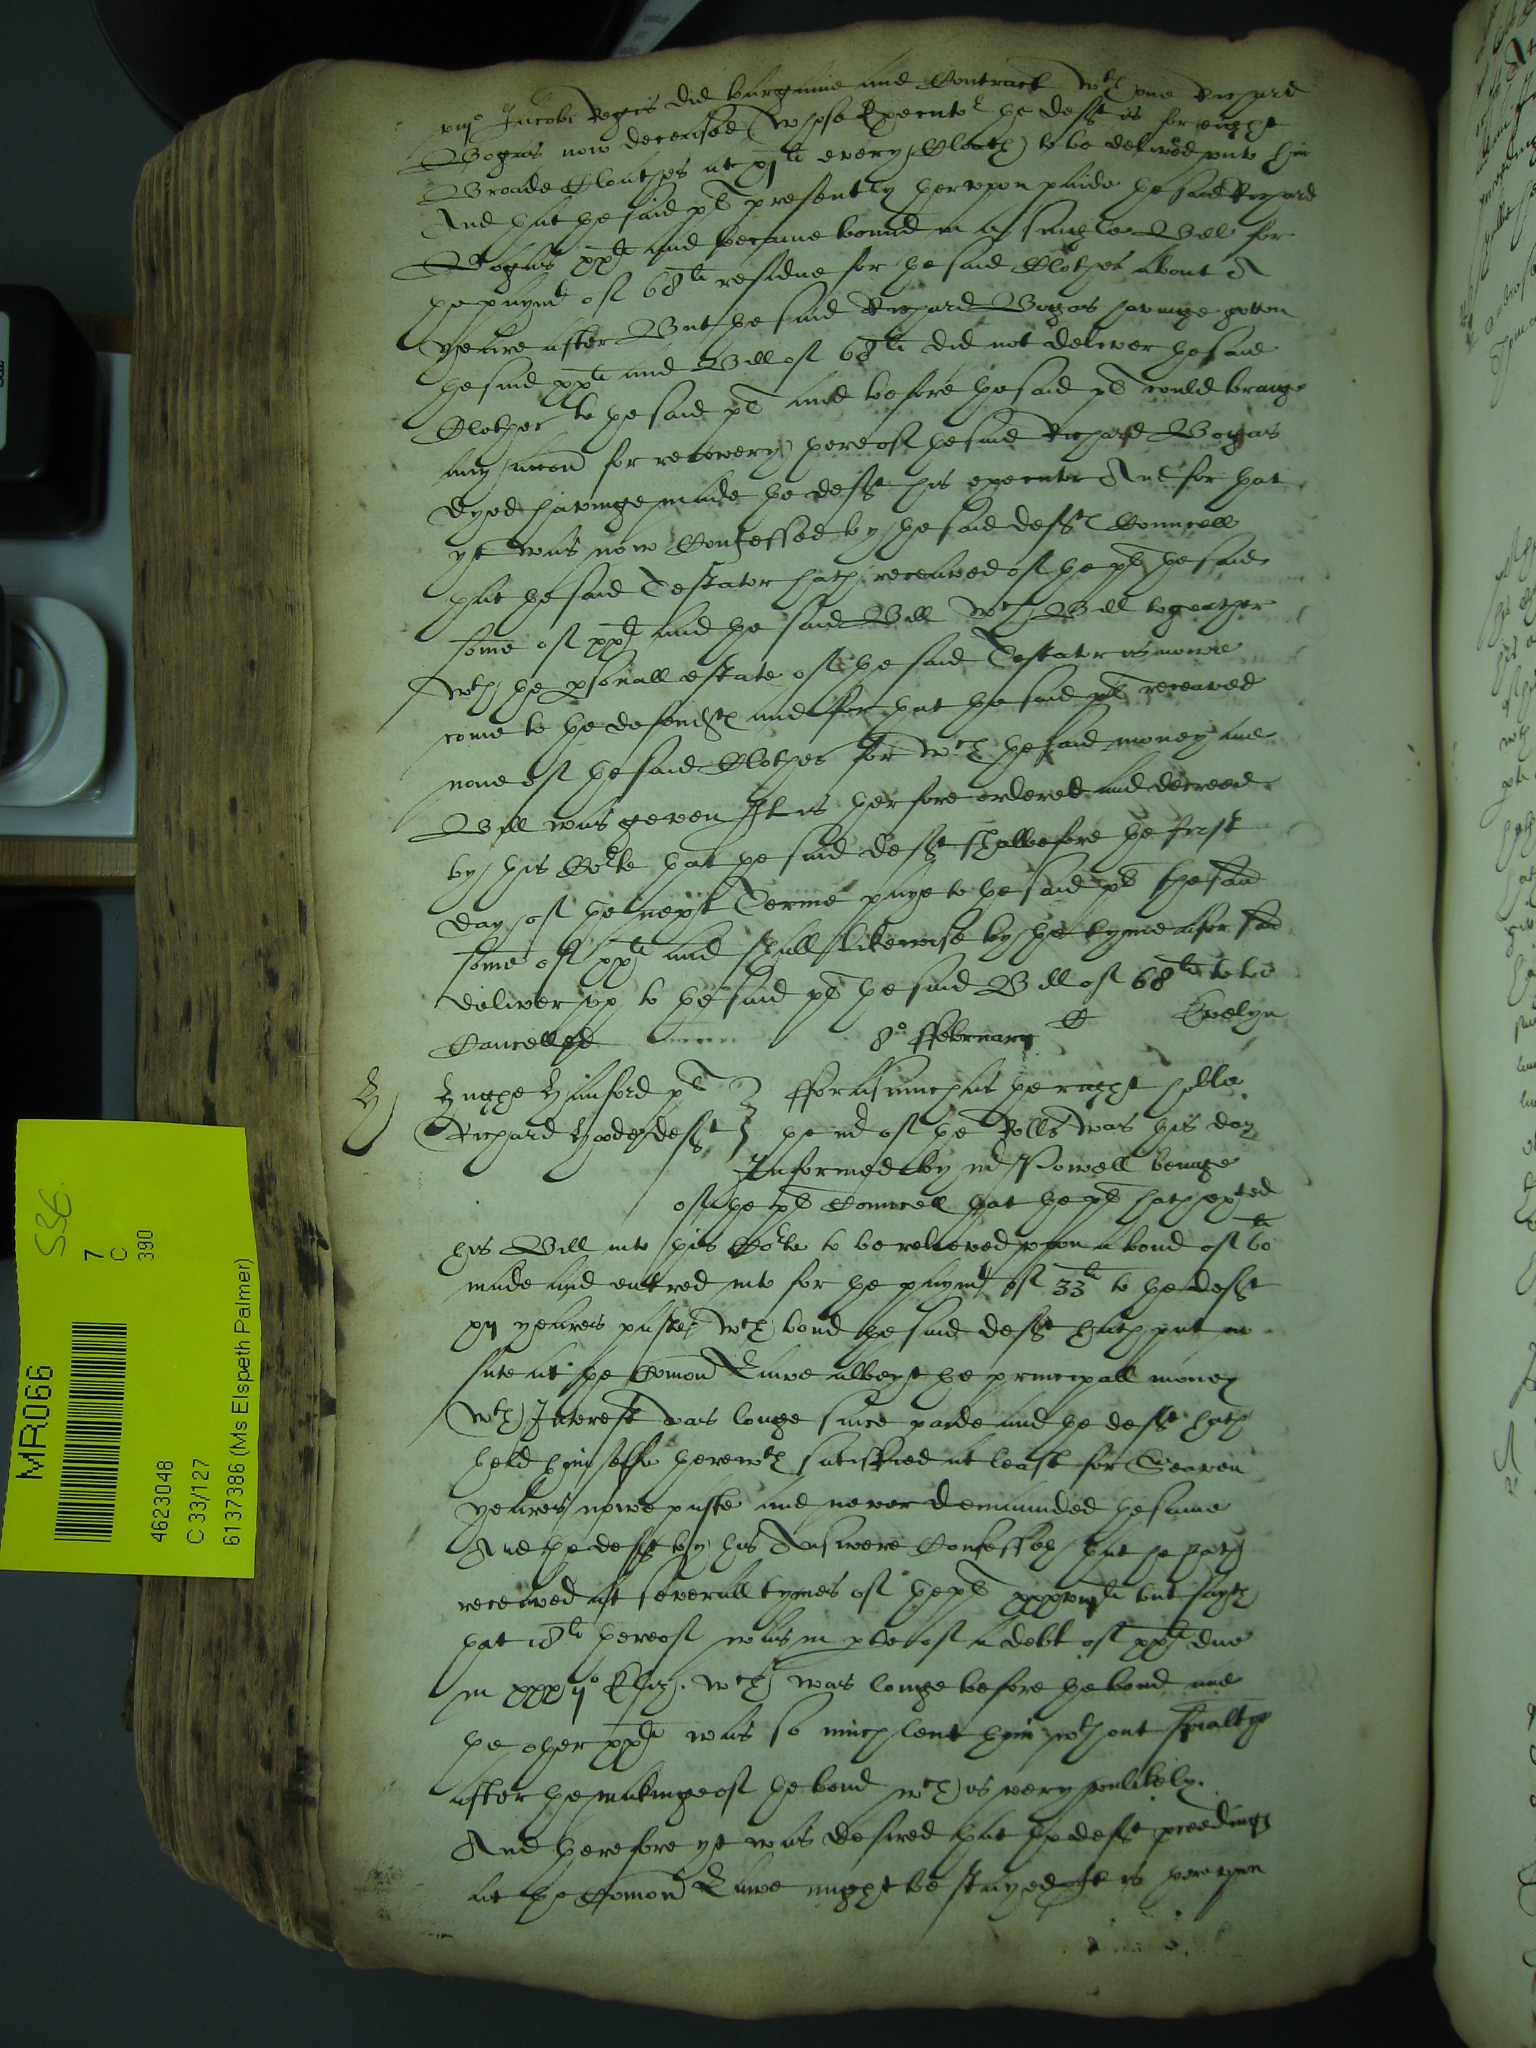 xiijo Jacobi Regis did bargaine and Contract wth one Richard
Bogas now deceased (whose Executor the defft is for eight
Broade Cloathes at xjli every Cloath) to be delivered unto him
And that the said plt presently therupon paide the said Richard
Bogas xxli and became bound in a single Bill for
the paymt of 68li residue for the said Clothes about A
yeare after But the said Richard Bogas havinge gotten
the said xxli and Bill of 68li did not deliver the said
Clothes to the said plt and before the said plt could bringe
any accon for recovery thereof the said Richard Bogas
dyed havinge made the defft his executor And for that
yt was now Confessed by the said defftes Councell
that the said Testator hath receaved of the plt the said
some of xxli and the said Bill wch Bill togeather
wth the psonall estate of the said Testator is nowe
come to the defendtes and for that the said plt receaved
none of the said Clothes for wch the said money and
Bill was geven It is therfore ordered and decreed
by this Corte that the said defft shall before the first
day of the next Terme paye to the said plt the said
some of xxli and shall likewise by the tyme aforesaid
deliver up to the said plt the said Bill of 68li to be
Cancelled
8o ffebruary
Evelyn
Hughe Hanford plt
Richard Hyde defft
fforasmuch as the right hoble
the mr of the Rolls was this day
Informed by mr Powell beinge
of the plts Councell that the plt hath exhited
his Bill into this Corte to be releeved upon a bond of 60li
made and entred into for the paymt of 33li to the defft
xij yeares paste wch bond the said defft hath put in
sute at the Comon Lawe albeyt the principall money
wth Interest was longe since paide and the defft hath
held himselfe therewth satisfied at least for Seaven
yeares nowe paste and never demaunded the same
And the defft by his Answere Confesseth that he hath
receaved at severall tymes of the plt xxxviijli but sayth
that 18li thereof was in pte of a debt of xxli due
in xxxijo Eliz. wch was longe before the bond and
the other xxli was so much lent him wthout specialtye
after the makinge of the bond wch is very unlikely.
And therefore yt was desired that the defftes proceedings
at the Comon Lawe might be stayed It is thereupon
MR066
536
7
C
390
4623048
C 33/127
6137386 (Ms Elspeth Palmer)